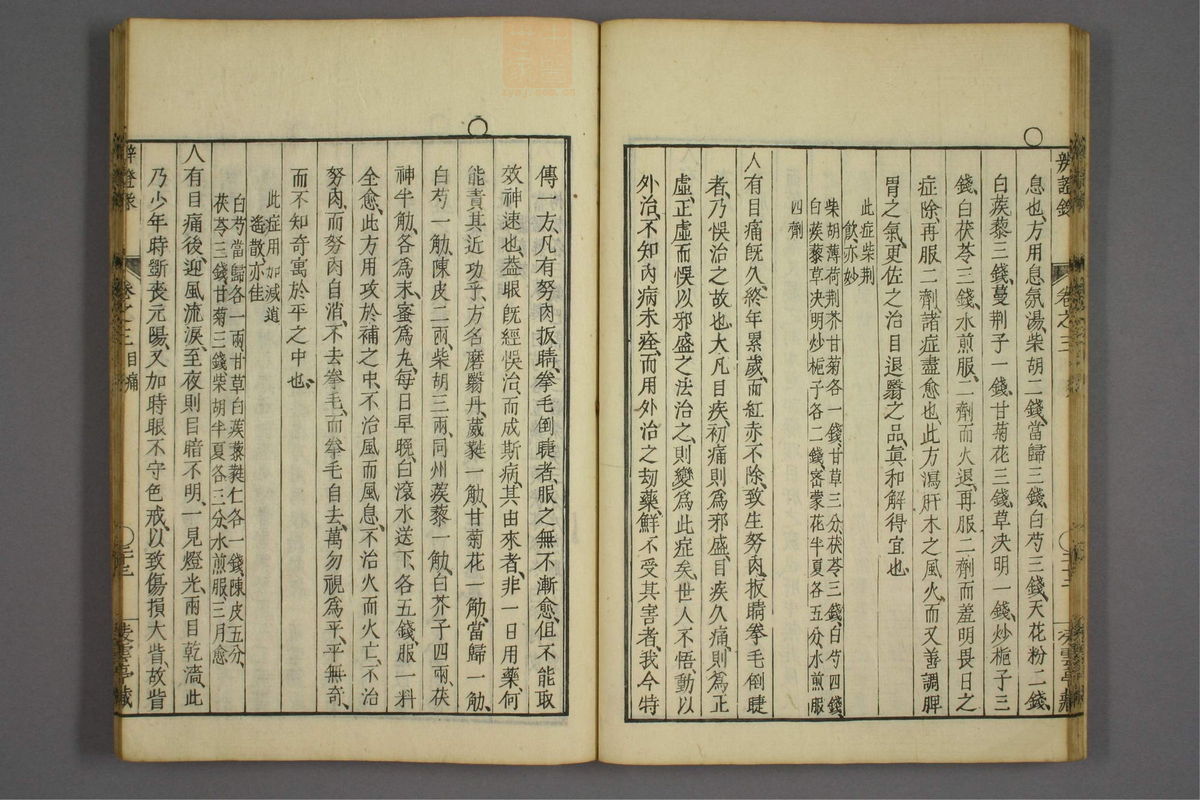 辨證錄 卷之三
息也、方用息氛湯、柴胡二錢、當歸三錢、白芍三錢、天花粉二錢、
白蒺藜三錢、蔓荆子一錢、甘菊花三錢、草决明一錢、炒梔子三
錢、白茯苓三錢、水煎服、二劑而火退、再服二劑而羞明畏日之
症除、再服二劑、諸症盡愈也、此方瀉肝木之風火、而又善調脾
胃之氣、更佐之治目退翳之品、眞和解得宜也
此症柴荆
飲亦妙
柴胡薄荷荆芥甘菊各一錢、甘草三分茯苓三錢、白芍四錢、
白蒺藜草决明炒梔子各二錢、密蒙花半夏各五分、水煎服
四劑
人有目痛既久、終年累歲、而紅赤不除、致生努肉、扳睛拳毛倒睫
者、乃悞治之故也、大凡目疾、初痛則爲邪盛、目疾久痛、則爲正
虛、正虛而悞以邪盛之法治之、則變爲此症矣、世人不悟、動以
外治、不知內病未痊、而用外治之刼藥、鮮不受其害者、我今特
傳一方、凡有努肉扳睛、拳毛倒睫者、服之無不漸愈、但不能取
效神速也、葢眼既經悞治、而成斯病、其由來者、非一日用藥、何
能責其近功乎、方名磨翳丹、葳蕤一觔、甘菊花一觔、當歸一觔、
白芍一觔、陳皮二兩、柴胡三兩、同州蒺藜一觔、白芥子四兩、茯
神半觔、各爲末、蜜爲丸、每日早晚、白滾水送下、各五錢、服一料
全愈、此方用攻於補之中、不治風而風息、不治火而火亡、不治
努肉、而努肉自消、不去拳毛、而拳毛自去、萬勿視爲平、平無奇、
而不知奇寓於平之中也、
此症用加減逍
遙散亦佳
白芍當歸各一兩甘草白蒺藜蕤仁各一錢陳皮五分、
茯苓三錢、甘菊三錢、柴胡半夏各三分水煎服三月愈
人有目痛後、迎風流淚、至夜則目暗不明、一見燈光、兩目乾濇、此
乃少年時斲喪元陽、又加時眼不守色戒、以致傷損大眥、故眥
辨證錄 卷之三 目痛